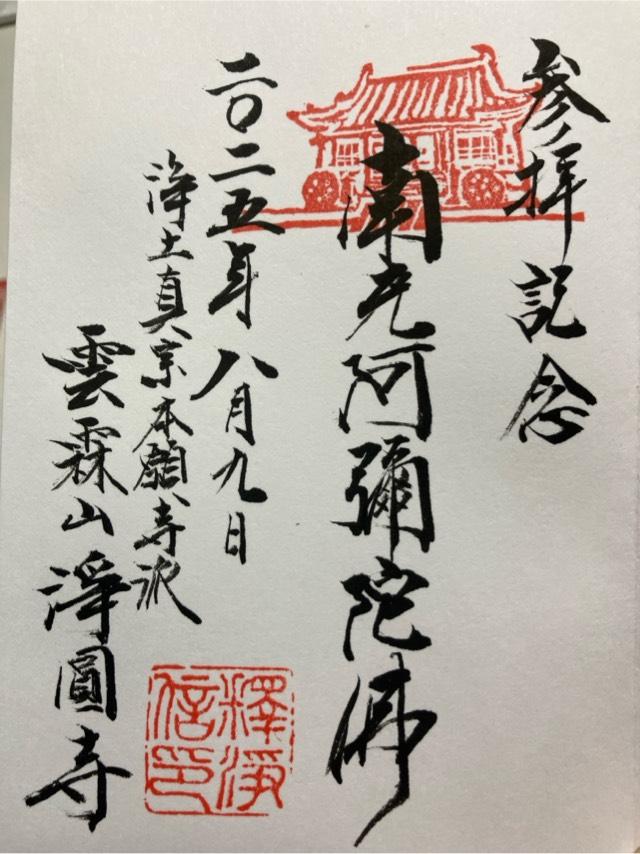 参拝記念
南无阿彌陀佛
二〇二五年八月九日
浄土真宗本願寺派
雲霖山淨圓寺
釋淨
信印